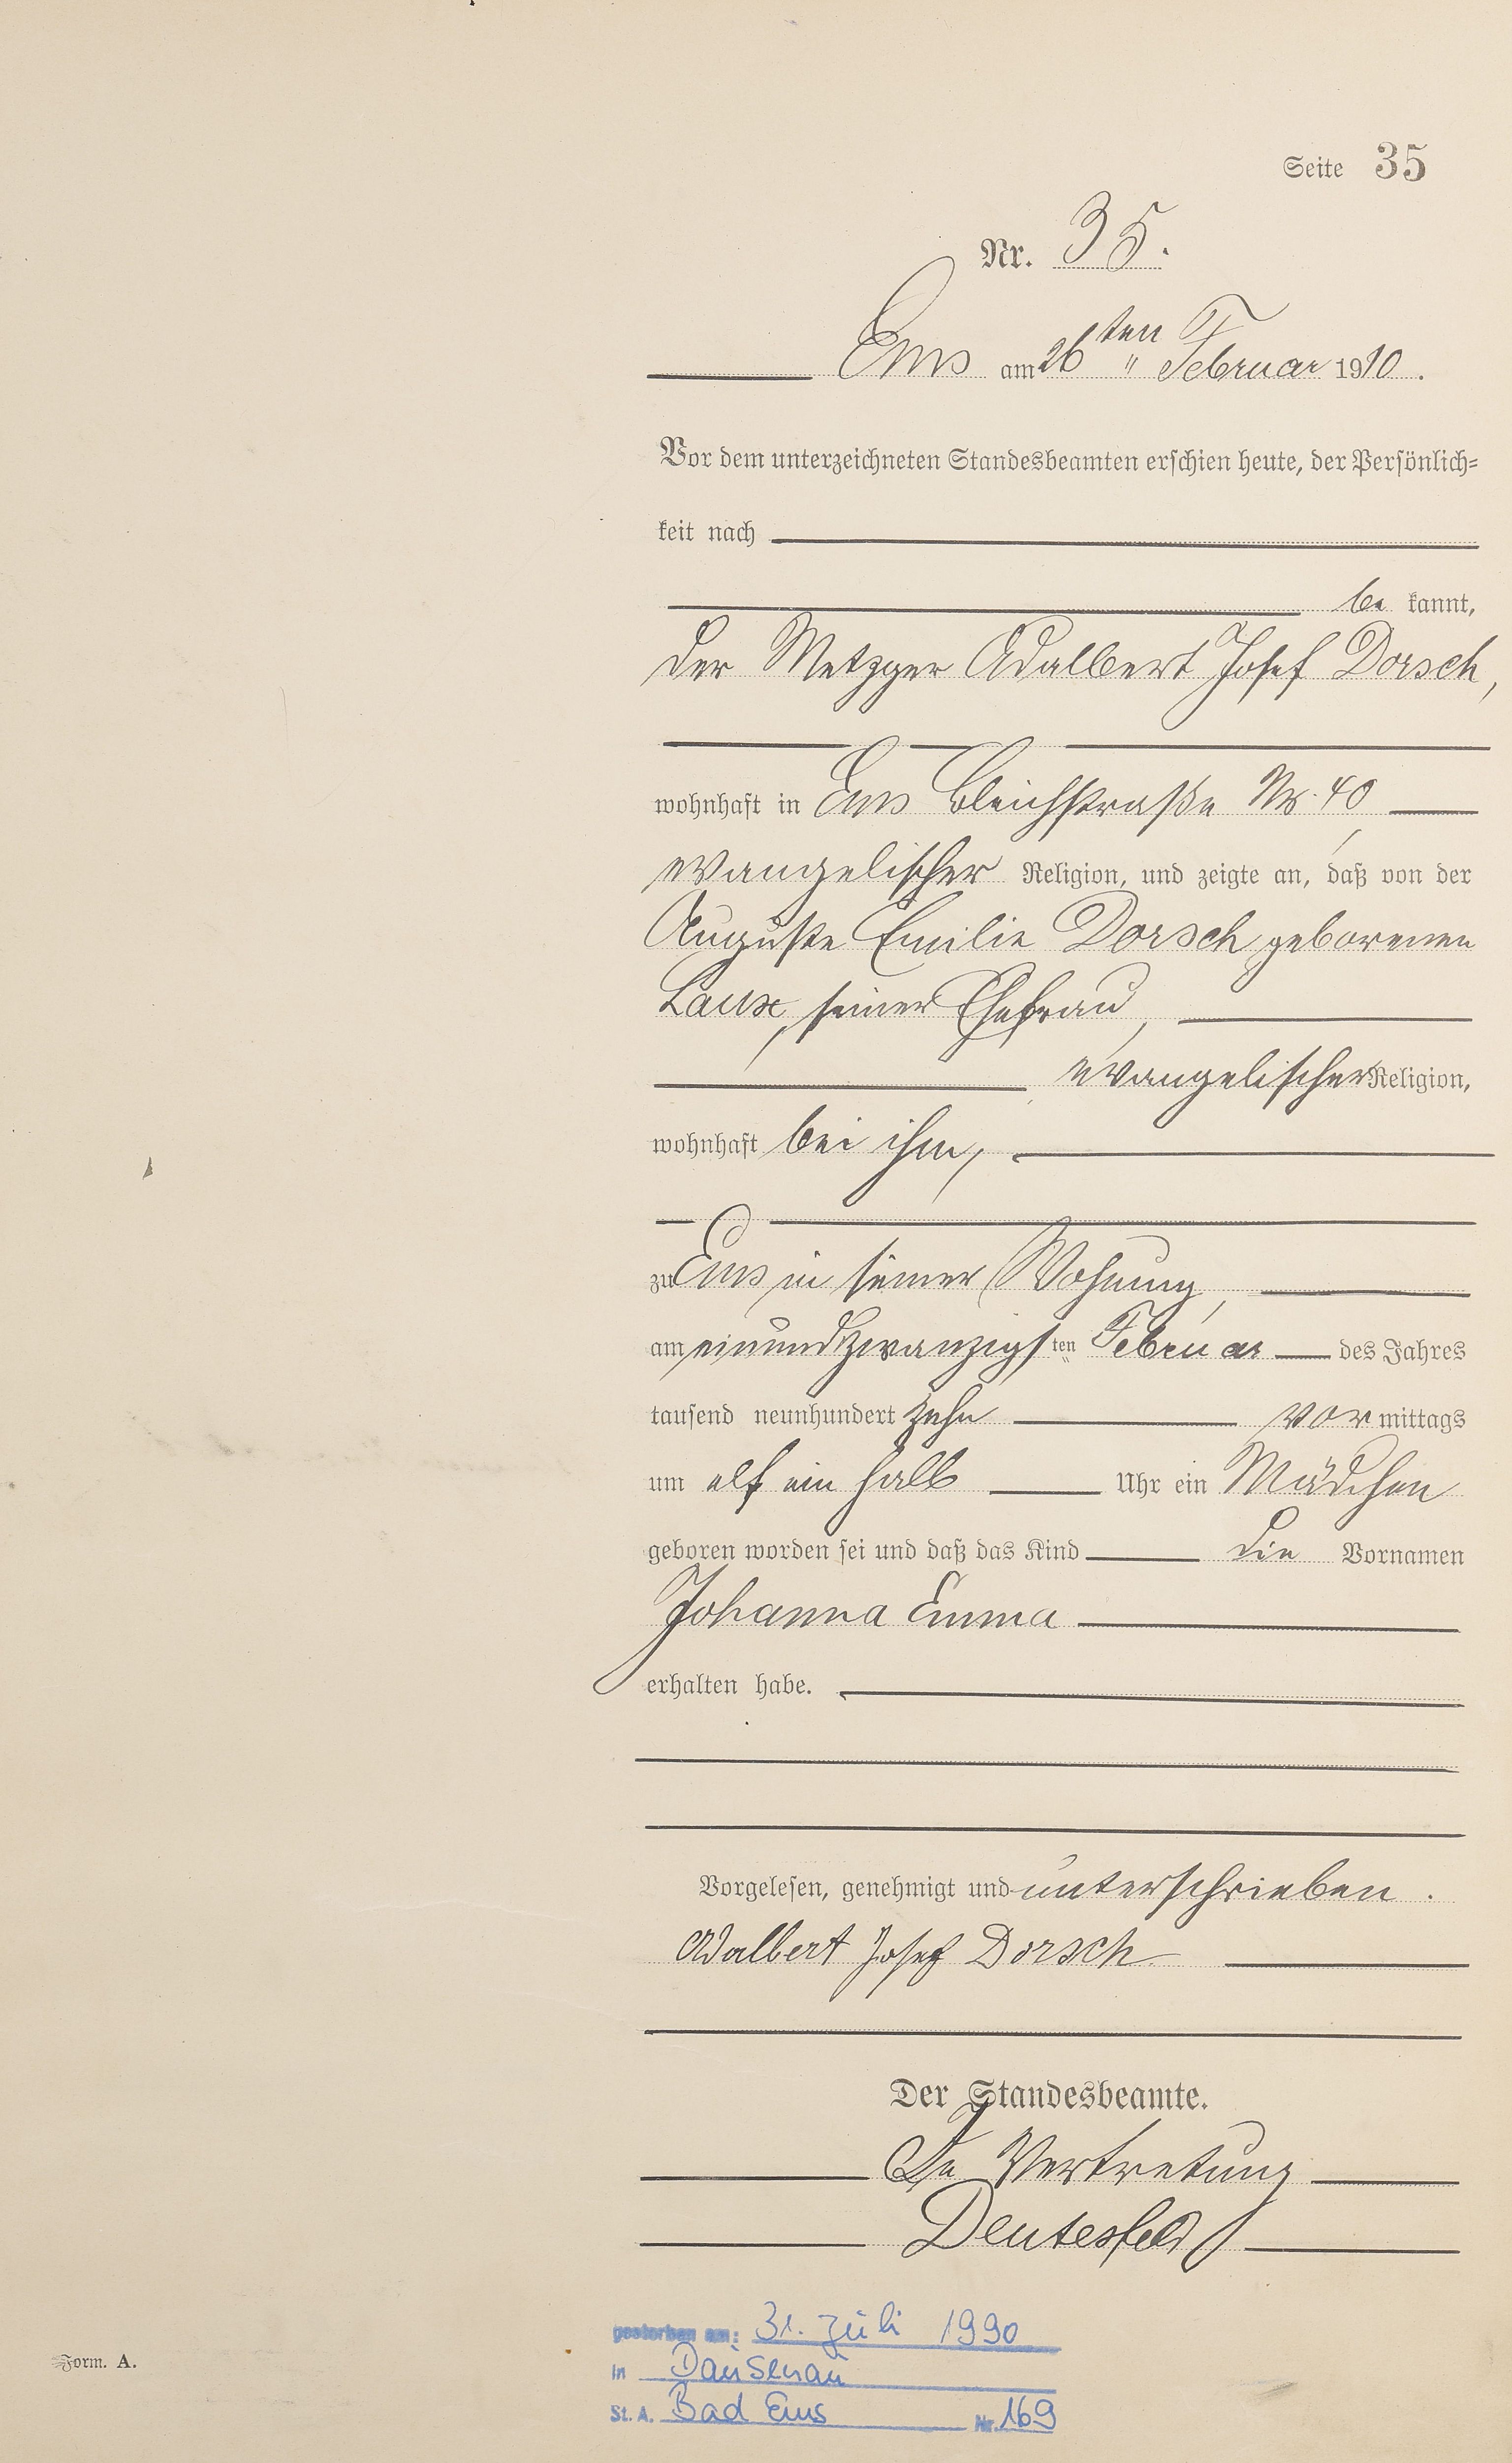 Seite 35
Nr. 35.
Ems am 26ten " Februar 1910.
Vor dem unterzeichneten Standesbeamten erschien heute, der Persönlich=
keit nach
be kannt,
der Metzger Adalbert Josef Dorsch,
wohnhaft in Ems Bleichstraße Nr. 40,
evangelischer Religion, und zeigte an, daß von der
Auguste Emilie Dorsch geborenen
Laux, seiner Ehefrau,
evangelischer Religion,
wohnhaft bei ihm,
zu Ems in seiner Wohnung,
am einundzwanzigsten Februar des Jahres
tausend neunhundert zehn vor mittags
um elf ein halb Uhr ein Mädchen
geboren worden sei und daß das Kind die Vornamen
Johanna Emma
erhalten habe.
Vorgelesen, genehmigt und unterschrieben.
Adalbert Josef Dorsch
Der Standesbeamte.
In Vertretung
Deutesfeld
gestorben am: 31. Juli 1990
in Dausenau
St. A. Bad Ems Nr. 169
Form. A.